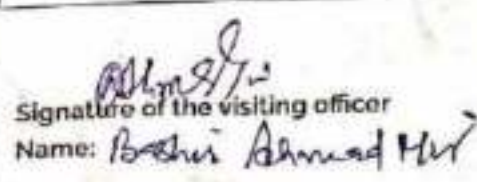 Signature of the visiting officer
Name: Bashir Ahmad Mir